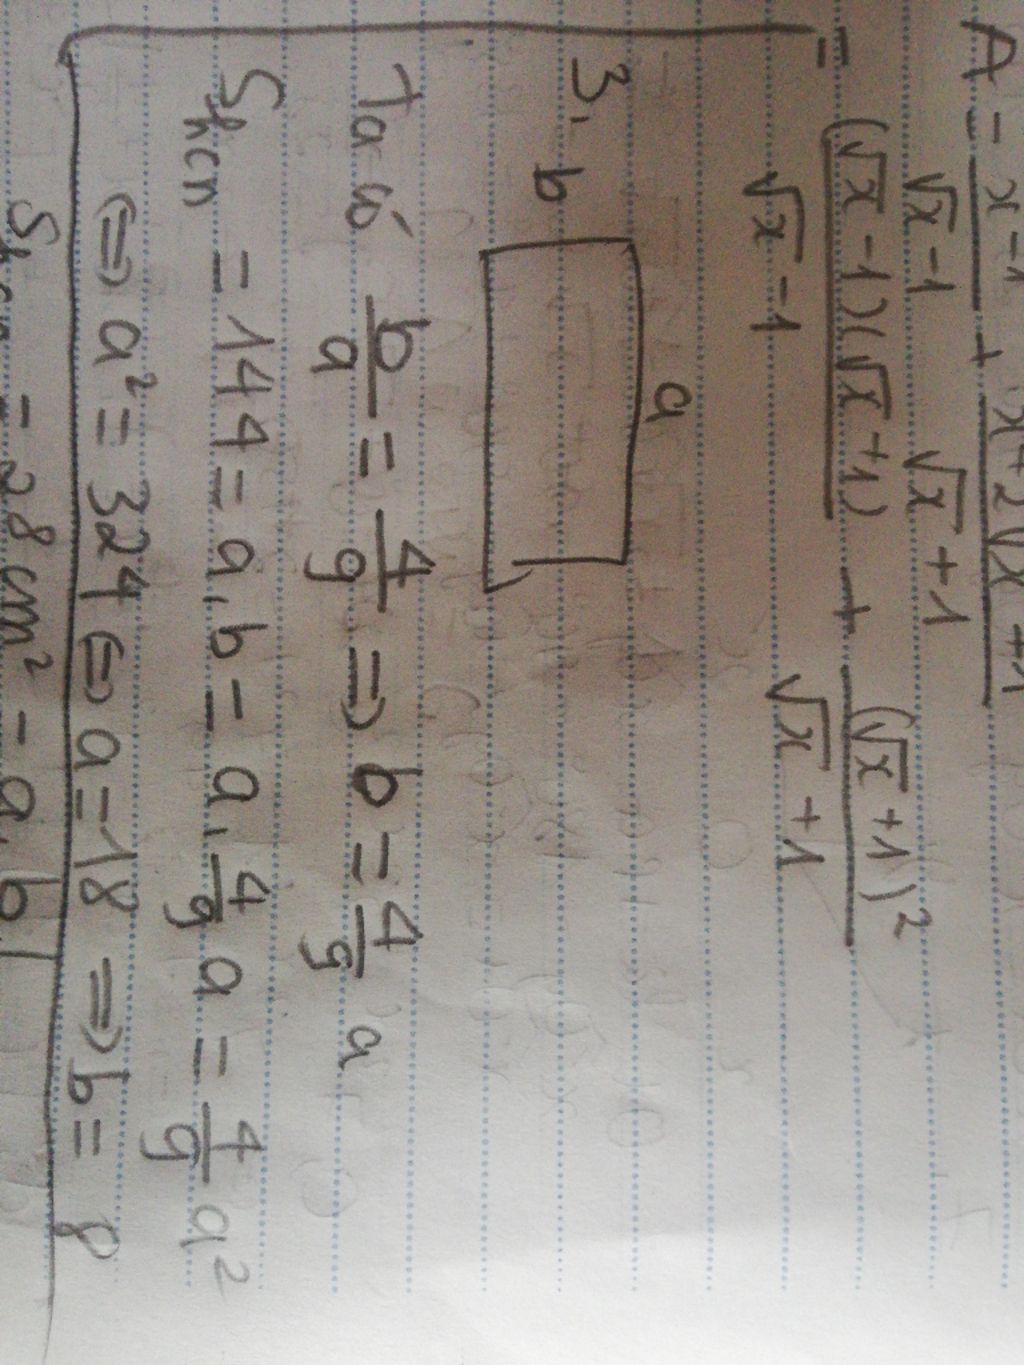 A = x-1/√x-1 + x+2√x+1/√x+1
= (√x-1)(√x+1)/√x-1 + (√x+1)²/√x+1
3,
a
b
Ta có b/a = 4/9 => b = 4/9 a
Shcn = 144 = a.b = a.4/9 a = 4/9 a²
<=> a² = 324 <=> a = 18 => b = 8
= 28 cm² = a.b